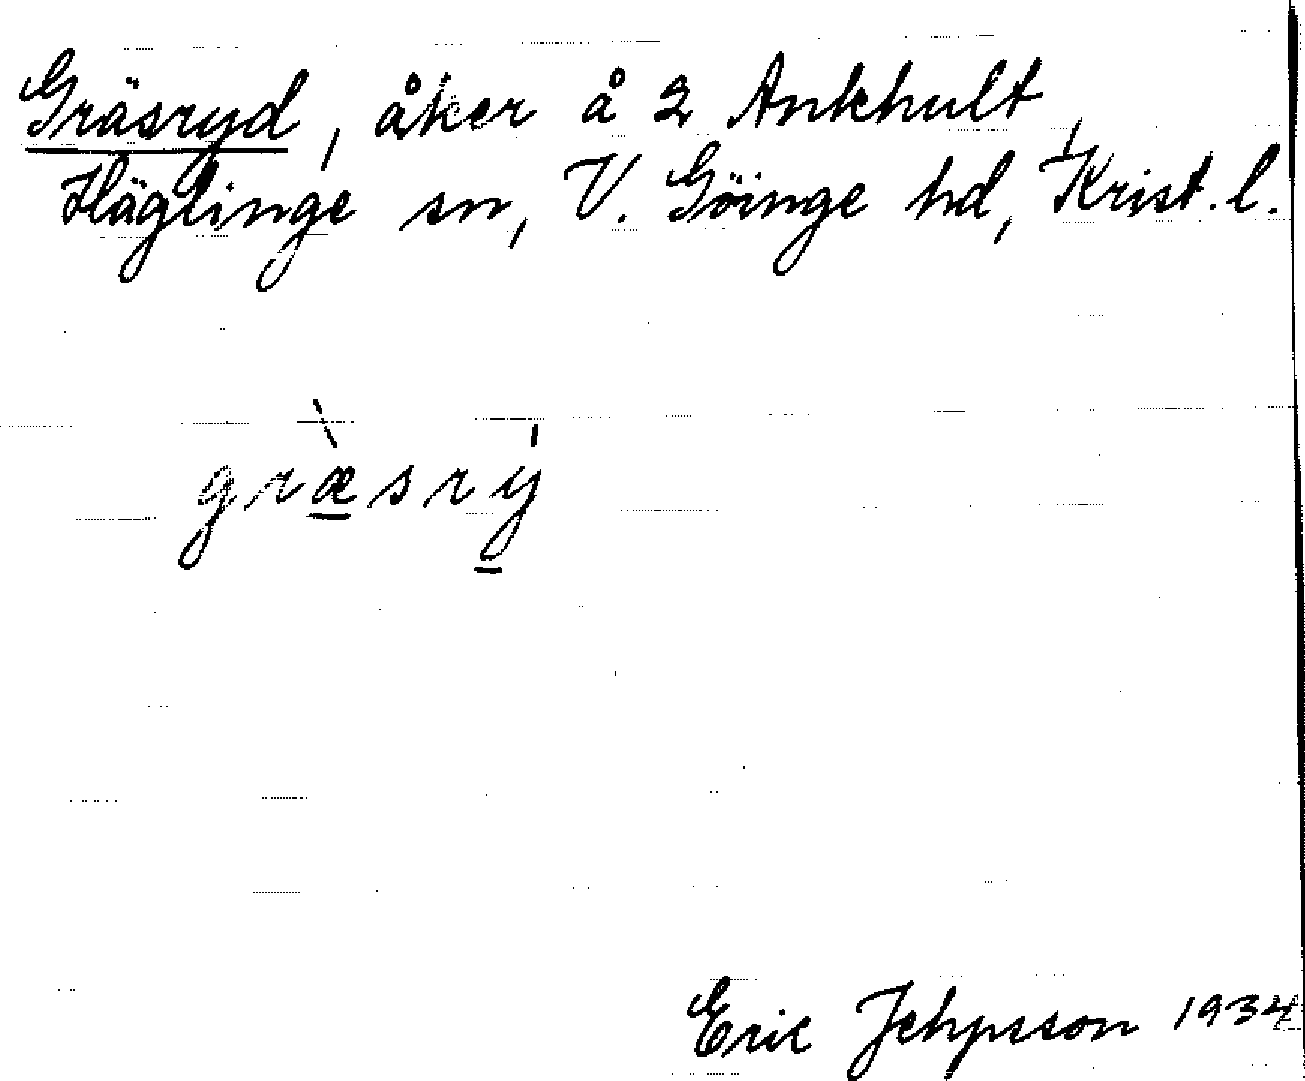 Gräsryd, åker å 2 Ankhult,
Häglinge sn, V. Göinge hd, Krist. l.
græ̱̀srý̱
Eric Jehpsson 1934